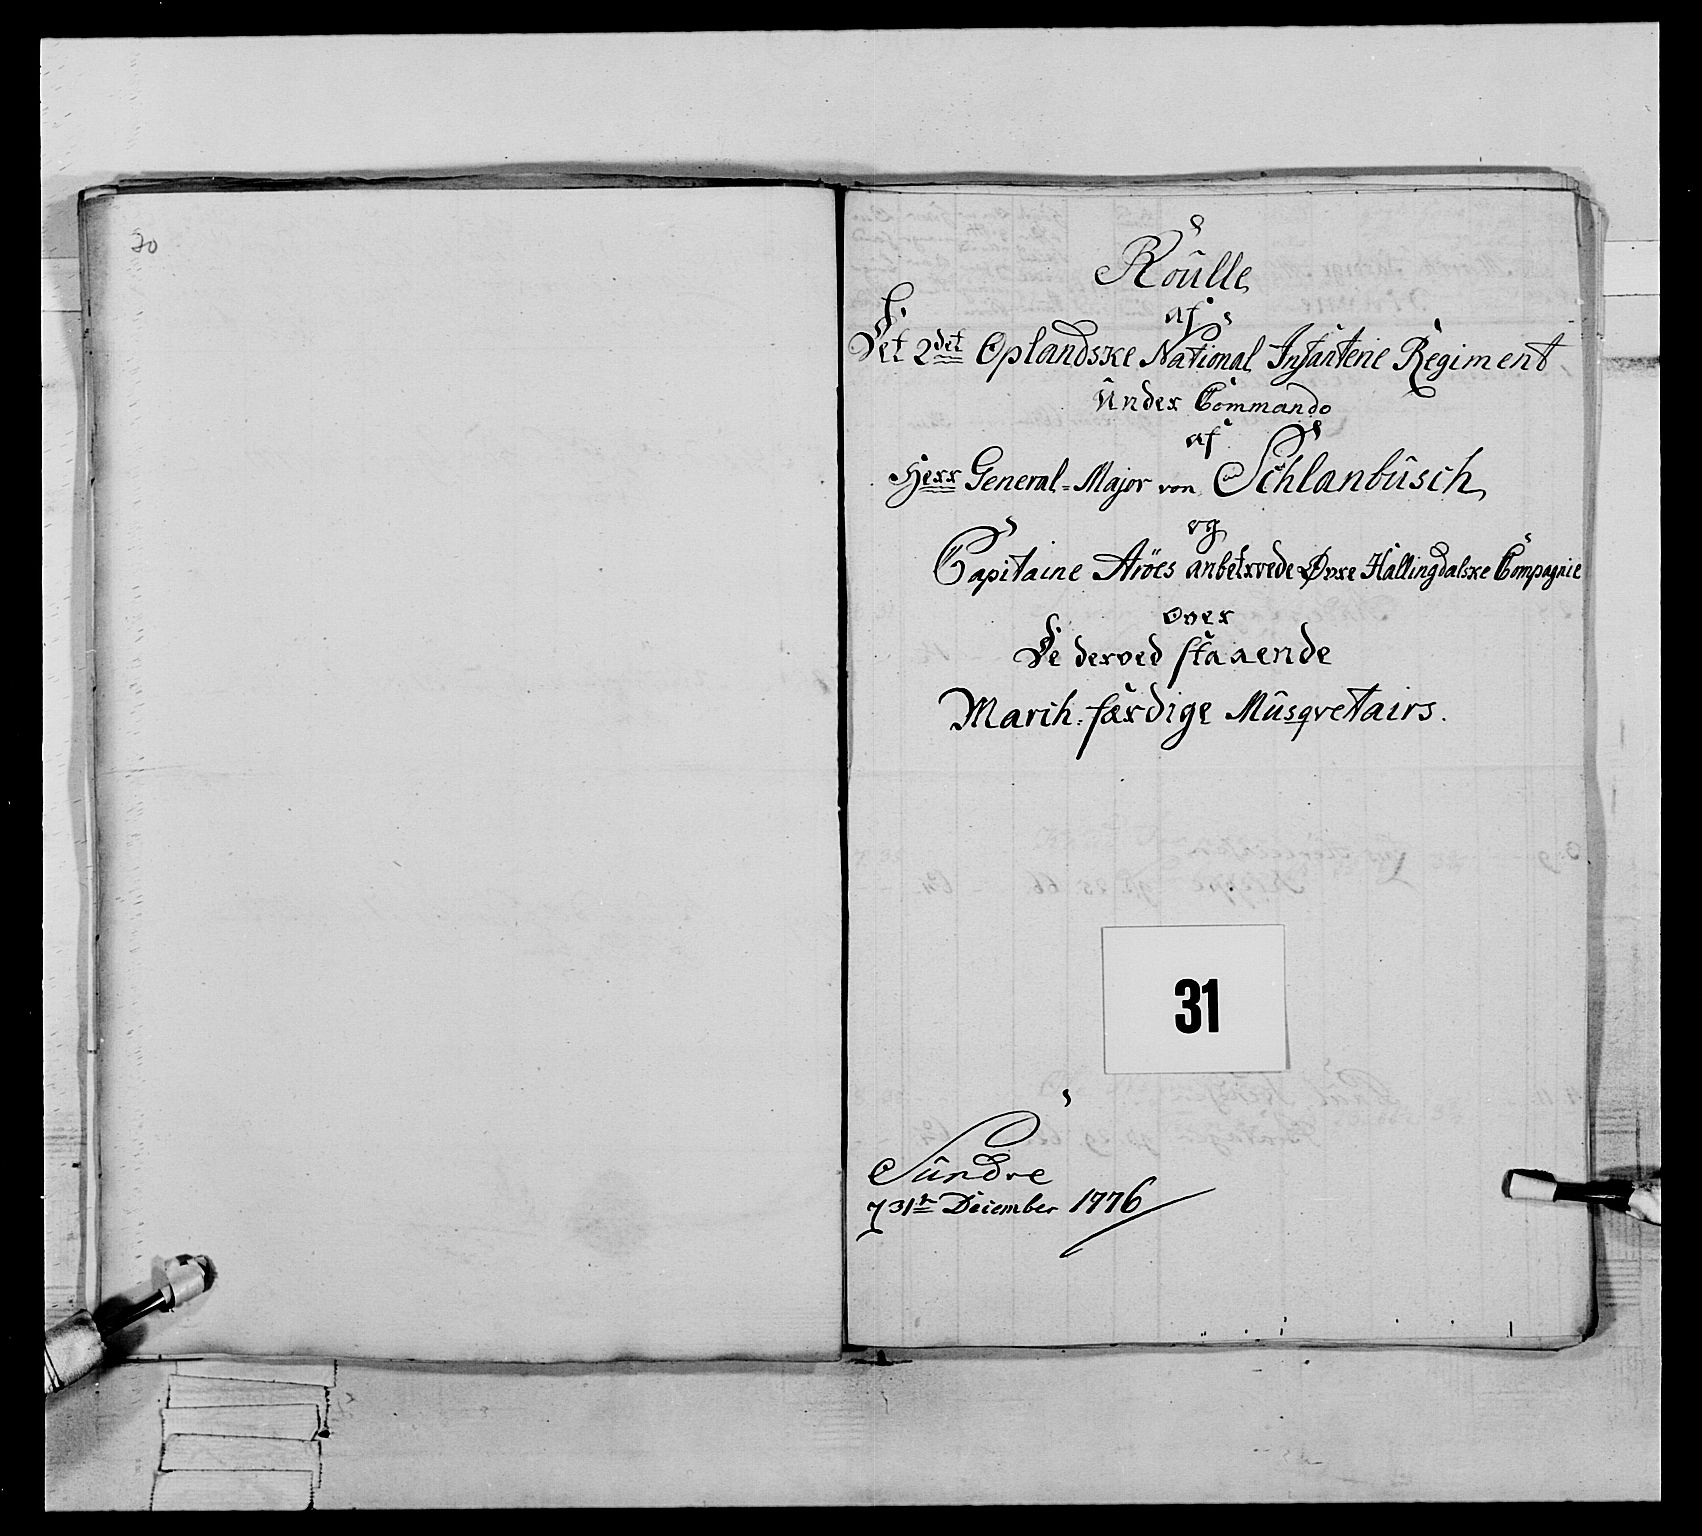 20
Roulle
af
Det 2det Oplandske National Infanterie Regiment
Under Commando
af
Herr General-Major von Schlanbusch
og
Capitaine Arøes anbetroede Øvre Hallingdalske Compagnie
over
De derved staaende
March-færdige Musqvetairs.
31
Sundre
d 31te December 1776